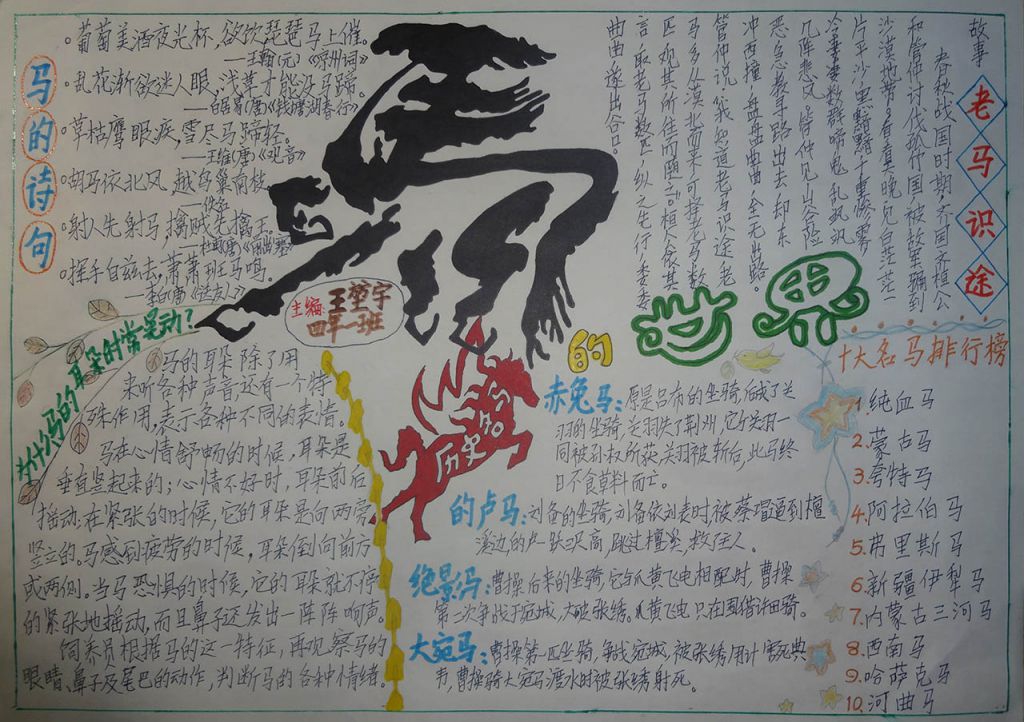 马的诗句
。葡萄美酒夜光杯,欲饮琵琶马上催。
—王翰(元)《凉州词》
。乱花渐欲迷人眼,浅草才能没马蹄。
—白居易(唐)《钱塘湖春行》
。草枯鹰眼疾,雪尽马蹄轻。
—王维(唐)《观
。胡马依北风,越鸟巢南枝
—佚名
。射人先射马,擒贼先擒王。
—杜甫(唐)《前出塞》
。挥手自兹去,萧萧班马鸣。
—李白(唐)《送友人》
主编:王堃宇
四年一班
马的世界
老马识途
故事
春秋战国时期,齐国齐桓公
和管仲讨伐孤竹国,被敌军骗到
沙漠地带,
片平沙,黑黯黯千重惨雾,
冷凄凄数群啼鬼,乱飒飒
几阵悲风。管仲见山谷险
恶,急教寻路出去,却东
冲西撞,盘盘曲曲,全无出路。
管仲说:我知道老马识途,老
马多从漠北而来,可择老马数
匹,观其所往而随之。桓公依其
言,取老马数匹,纵之先行,委委
曲曲,遂出谷口。
十大名马排行榜
1.纯血马
2.蒙古马
3.夸特马
4.阿拉伯马
5.弗里斯马
6.新疆伊犁马
7.内蒙古三河马
8.西南马
9.哈萨克马
10.河曲马
为什么马的耳朵时常晃动?
马的耳朵除了用
来听各种声音,还有一个特
殊作用,表示各种不同的表情。
马在心情舒畅的时候,耳朵是
垂直竖起来的;心情不好时,耳朵前后
摇动;在紧张的时候,它的耳朵是向两旁
竖立的。马感到疲劳的时候,耳朵倒向前方
或两侧。当马恐惧的时候,它的耳朵就不停
的紧张地摇动,而且鼻子还发出一阵阵响声。
饲养员根据马的这一特征,再观察马的
眼睛、鼻子及尾巴的动作,判断马的各种情绪。
历史名
赤兔马:原是吕布的坐骑,后成了关
羽的坐骑,关羽失了荆州,它与关羽一
同被孙权所获,关羽被斩后,此马终
日不食草料而亡。
的卢马:刘备的坐骑,刘备依刘表时,被蔡瑁逼到檀
溪边,的卢一跃三丈高,跳过檀溪,救了主人。
绝景马:曹操后来的坐骑,它与爪黄飞电相配时,曹操
第二次争战于宛城,大破张绣。爪黄飞电只在围猎许田骑。
大宛马:曹操第一匹坐骑,争战宛城,被张绣用计害死典
韦,曹操骑大宛马渡水时被张绣射死。